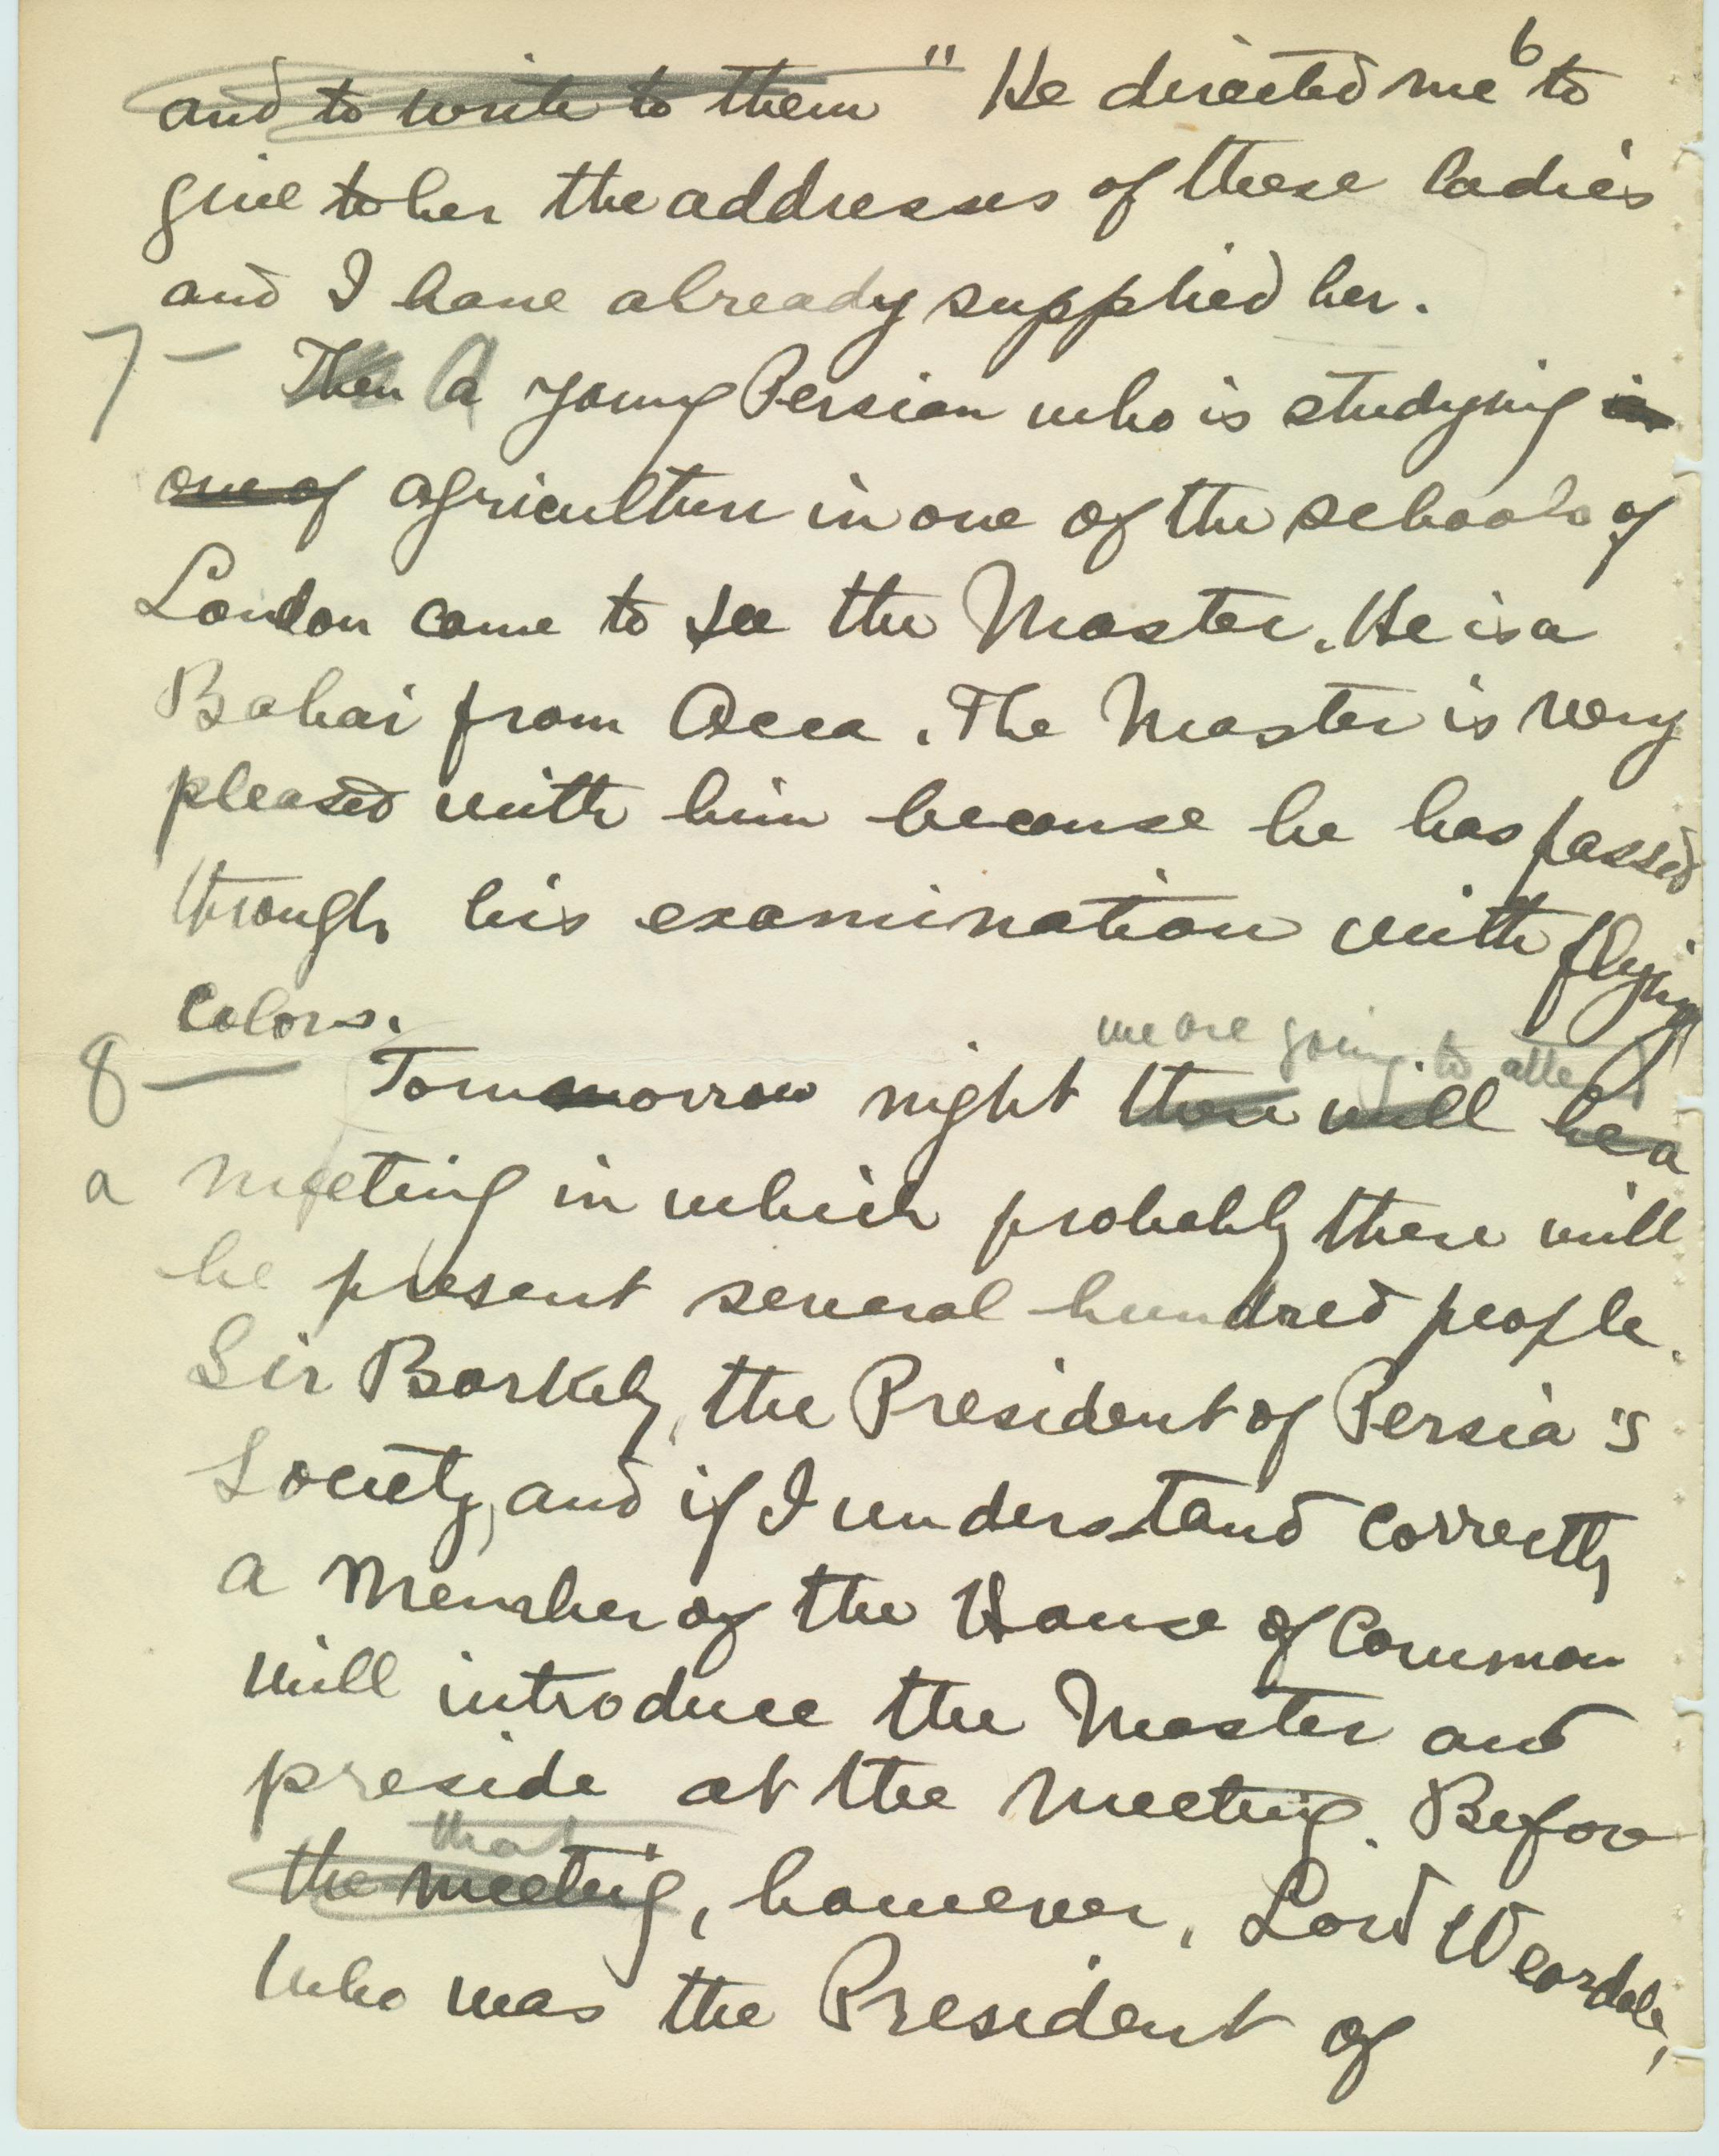 6
and to write to them" He directed me to
give to her the addresses of these ladies
and I have already supplied her.
7 – Then A a young Persian who is studying in
one of agriculture in one of the schools of
London came to see the Master. He is a
Bahai from Acca. The Master is very
pleased with him because he has passed
through his examination with flying
colors.
we are going to attend
8 – Tomorrow night there will be a
a meeting in which probably there will
be present several hundred people.
Sir Barkely, the President of Persia's
Society, and if I understand correctly
a member of the House of Common
will introduce the Master and
preside at the meeting. Before
that
the meeting, however, Lord Weardale,
who was the President of